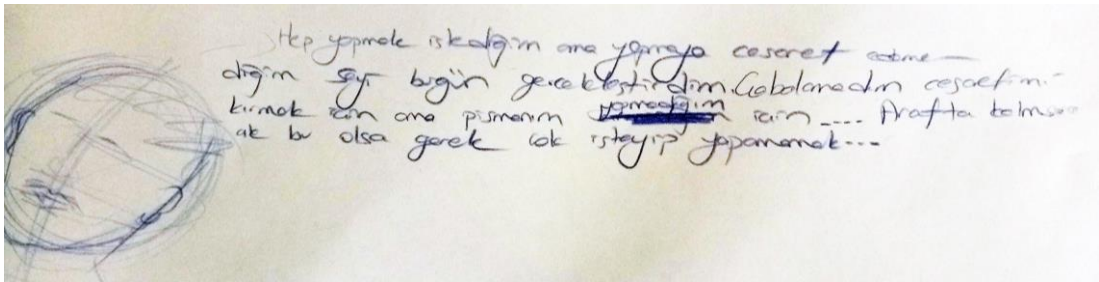 Hep yapmak istediğim ama yapmaya cesaret edeme-
diğim şeyi bugün gerçekleştirdim. Çabalamadım cesaretimi
kırmak için ama pişmanım yapmadığım için .... Arafta kalmak
bu olsa gerek çok isteyip yapamamak...